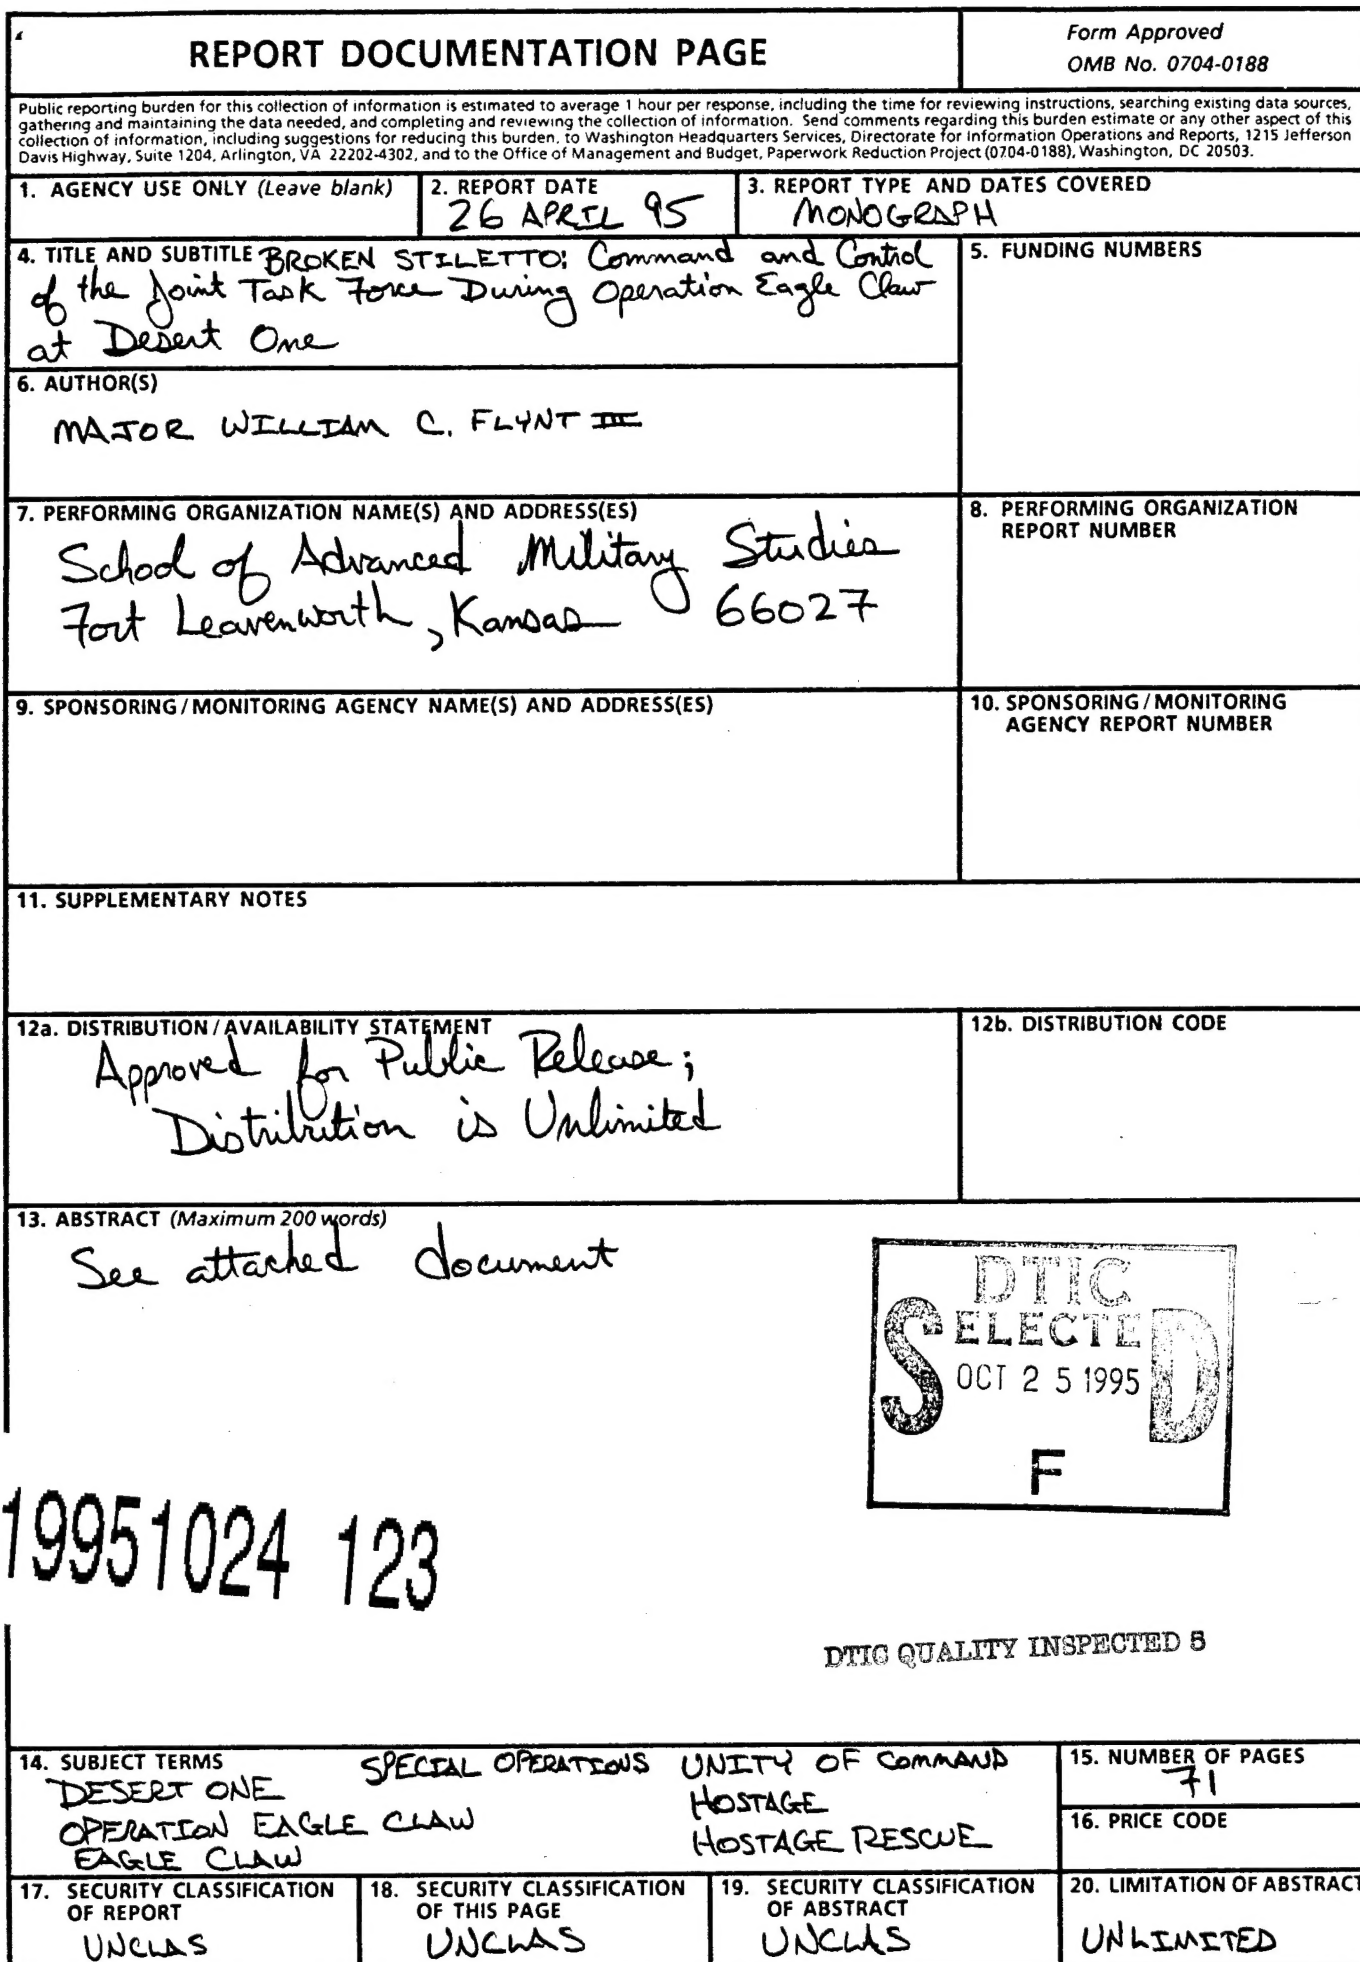 REPORT DOCUMENTATION PAGE
Form Approved
OMB No. 0704-0188
Public reporting burden for this collection of information is estimated to average 1 hour per response, including the time for reviewing instructions, searching existing data sources,
gathering and maintaining the data needed, and completing and reviewing the collection of information. Send comments regarding this burden estimate or any other aspect of this
collection of information, including suggestions for reducing this burden, to Washington Headquarters Services, Directorate for Information Operations and Reports, 1215 Jefferson
Davis Highway, Suite 1204, Arlington, VA 22202-4302, and to the Office of Management and Budget, Paperwork Reduction Project (0704-0188), Washington, DC 20503.
1. AGENCY USE ONLY (Leave blank)
2. REPORT DATE
26 APRIL 95
3. REPORT TYPE AND DATES COVERED
MONOGRAPH
4. TITLE AND SUBTITLE BROKEN STILETTO: Command and Control
of the Joint Task Force During Operation Eagle Claw
at Desert One
5. FUNDING NUMBERS
6. AUTHOR(S)
MAJOR WILLIAM C. FLYNT III
7. PERFORMING ORGANIZATION NAME(S) AND ADDRESS(ES)
School of Advanced Military Studies
Fort Leavenworth, Kansas 66027
8. PERFORMING ORGANIZATION
REPORT NUMBER
9. SPONSORING/MONITORING AGENCY NAME(S) AND ADDRESS(ES)
10. SPONSORING/MONITORING
AGENCY REPORT NUMBER
11. SUPPLEMENTARY NOTES
12a. DISTRIBUTION/AVAILABILITY STATEMENT
Approved for Public Release;
Distribution is Unlimited
12b. DISTRIBUTION CODE
13. ABSTRACT (Maximum 200 words)
See attached document
DTIC
SELECTED
OCT 25 1995
F
19951024 123
DTIC QUALITY INSPECTED 8
14. SUBJECT TERMS
DESERT ONE
OPERATION EAGLE CLAW
EAGLE CLAW
SPECIAL OPERATIONS
UNITY OF COMMAND
HOSTAGE
HOSTAGE RESCUE
15. NUMBER OF PAGES
71
16. PRICE CODE
17. SECURITY CLASSIFICATION
OF REPORT
UNCLAS
18. SECURITY CLASSIFICATION
OF THIS PAGE
UNCLAS
19. SECURITY CLASSIFICATION
OF ABSTRACT
UNCLAS
20. LIMITATION OF ABSTRACT
UNLIMITED